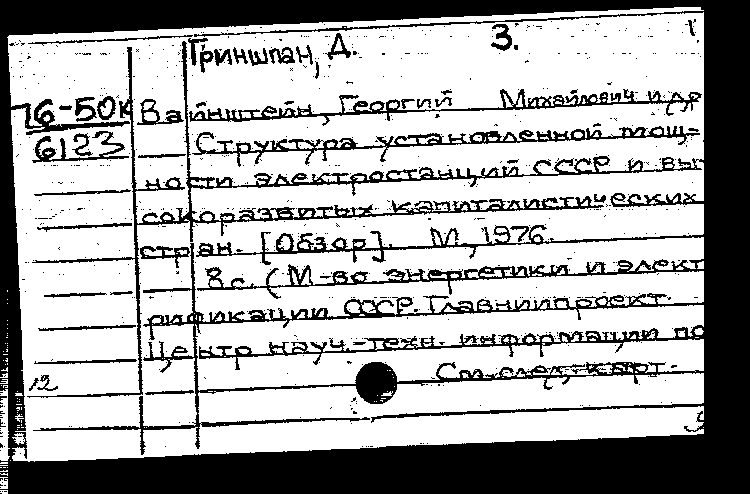 Гриншпан, Д. 3.
76-50К Вайнштейн, Георгий Михайлович и др
6123 Структура установленной мощ=
ности электростанций СССР и вы
сокоразвитых капиталистических
стран. [Обзор]. М., 1976.
8с. (М-во энергетики и элект
рификации СССР. Главниипроект.
Центр науч.-техн. информации по
12 См. след. карт.